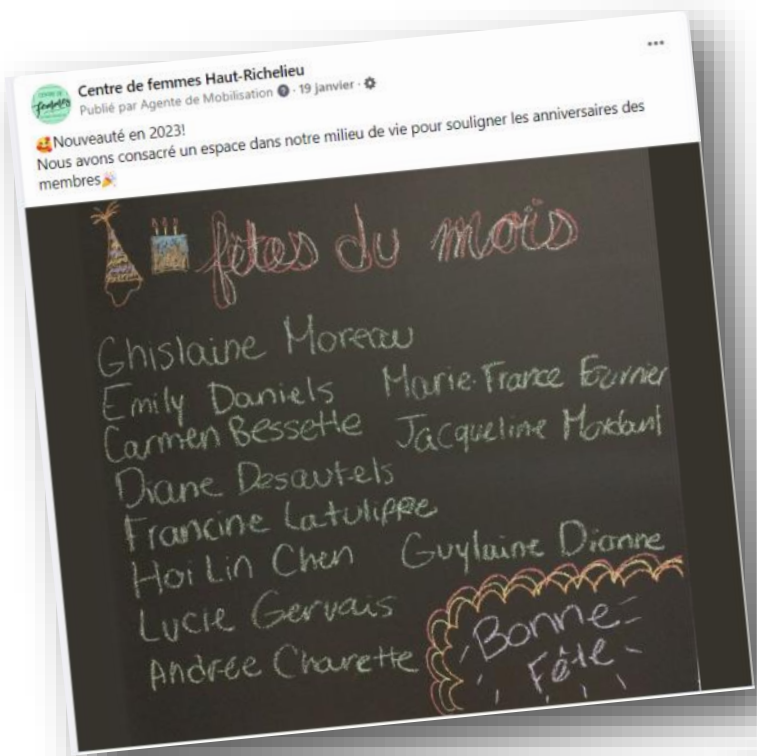 Centre de femmes Haut-Richelieu
Publié par Agente de Mobilisation · 19 janvier ·
Nouveauté en 2023!
Nous avons consacré un espace dans notre milieu de vie pour souligner les anniversaires des
membres
fêtes du mois
Ghislaine Moreau
Emily Daniels Marie-France Fournier
Carmen Bessette Jacqueline Mordant
Diane Desautels
Francine Latulippe
Hoi Lin Chen Guylaine Dionne
Lucie Gervais
Andrée Charette
Bonne
Fête